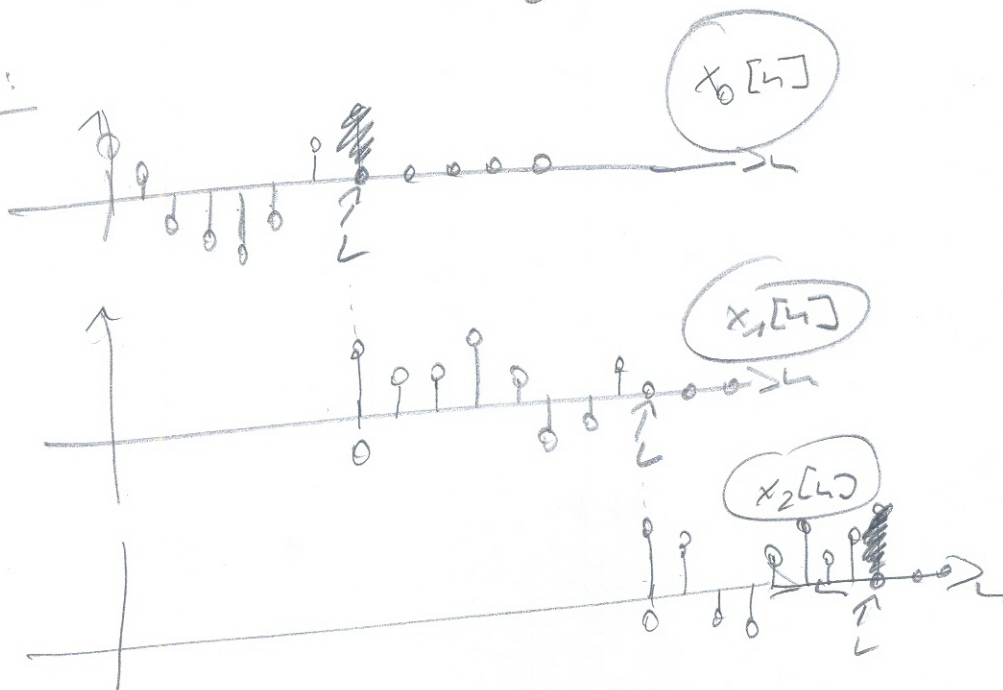 :
x₀[n]
n
L
x₁[n]
n
0
L
x₂[n]
n
0
L